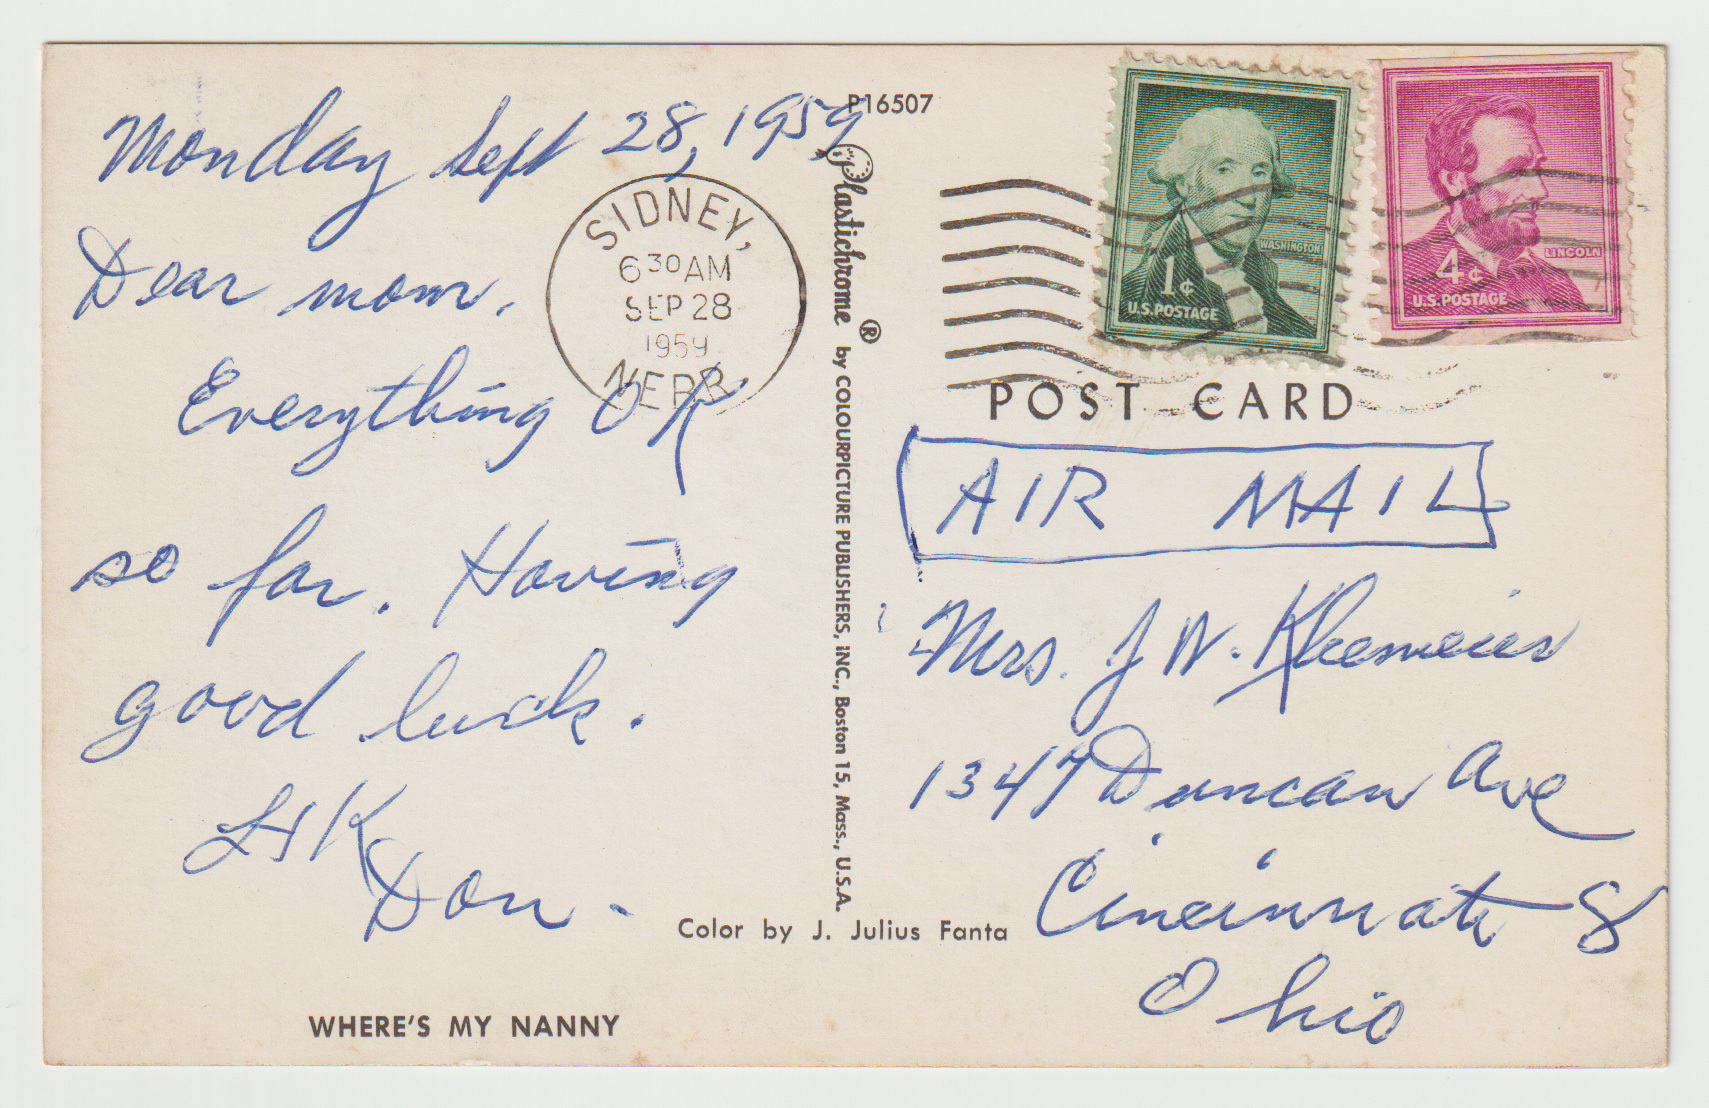 Monday Sept 28, 1959
Dear mom,
Everything OK
so far. Having
good luck.
Don.
WHERE'S MY NANNY
SIDNEY,
6 30 AM
SEP 28
1959
NEBR
P16507
Plastichrome ® by COLOURPICTURE PUBLISHERS, INC., Boston 15, Mass., U.S.A.
Color by J. Julius Fanta
WASHINGTON
1¢
U.S. POSTAGE
LINCOLN
4¢
U.S. POSTAGE
POST CARD
AIR MAIL
Mrs. J W.
1347 Duncan Ave
Cincinnati 8
Ohio